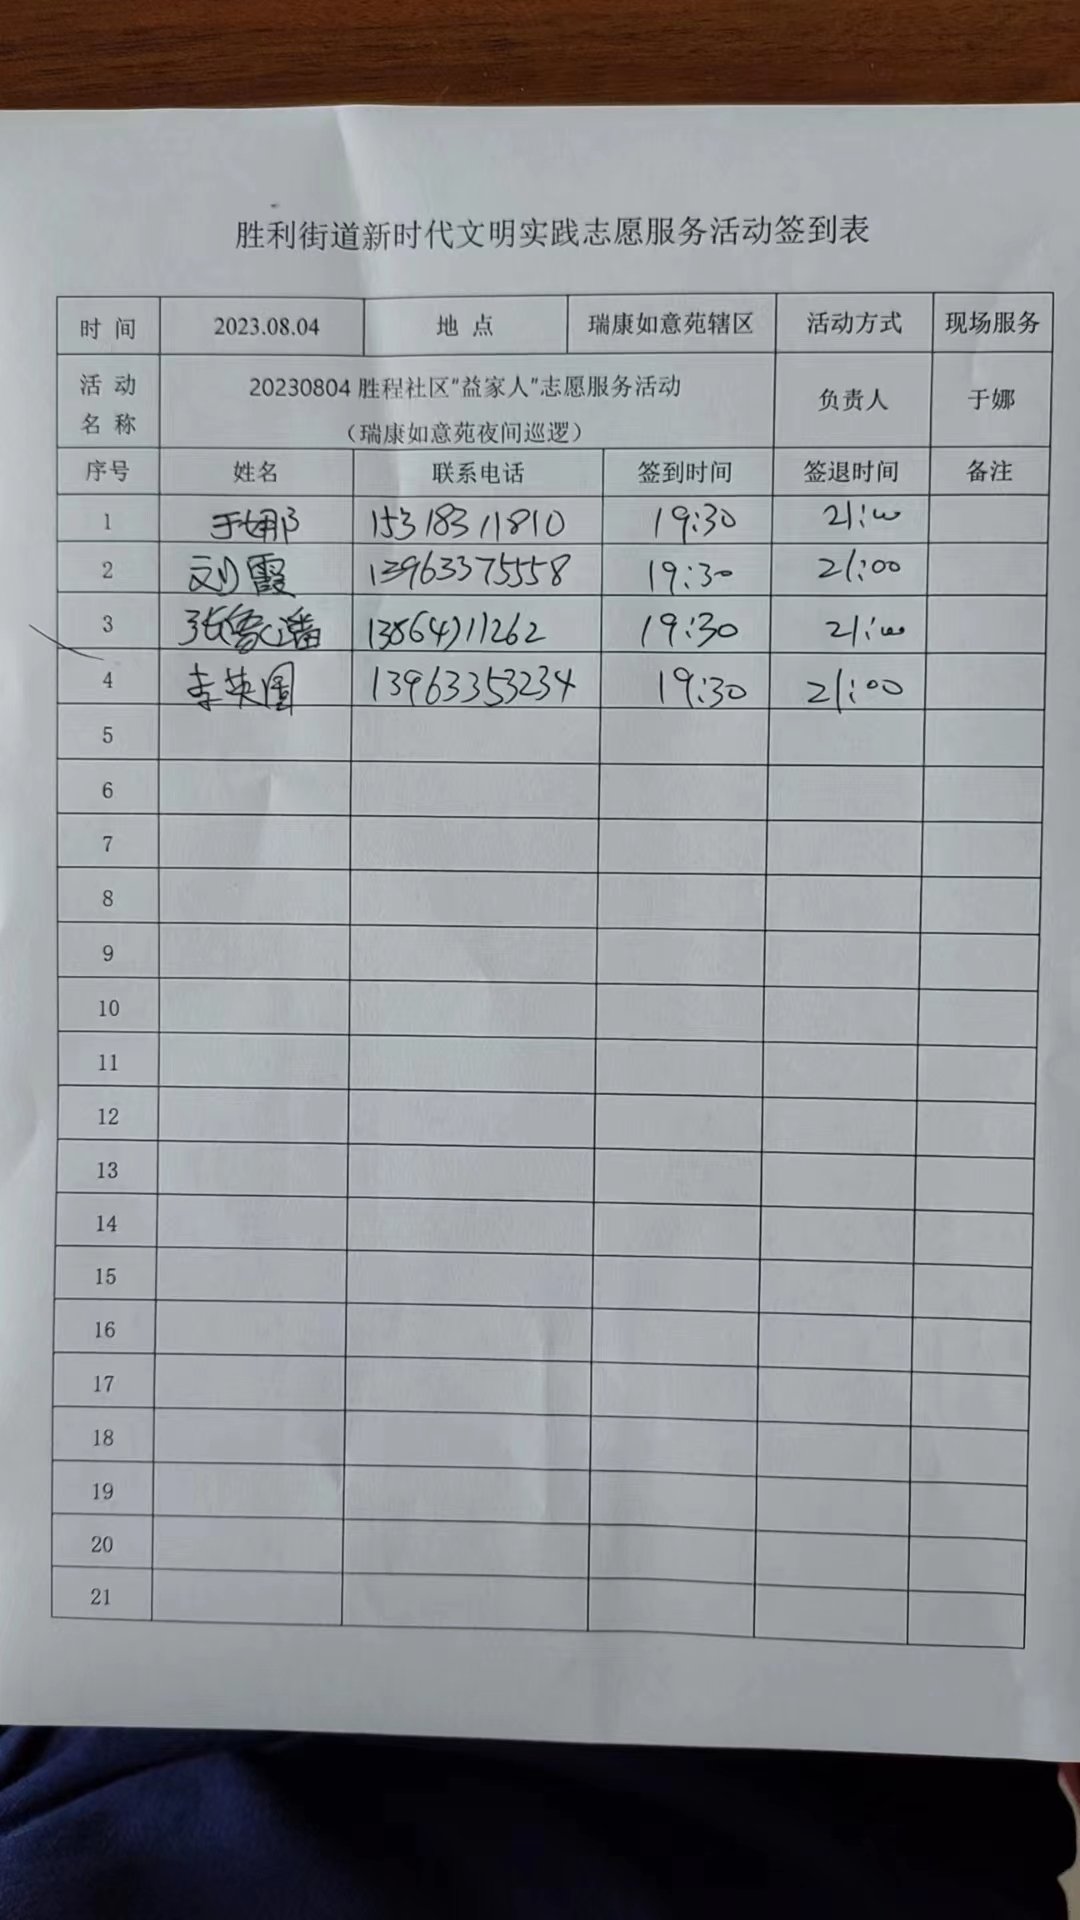 胜利街道新时代文明实践志愿服务活动签到表
时 间 2023.08.04 地 点 瑞康如意苑辖区 活动方式 现场服务
活 动 名 称 20230804 胜程社区"益家人"志愿服务活动 负责人 于娜
（瑞康如意苑夜间巡逻）
序号 姓名 联系电话 签到时间 签退时间 备注
1 于娜 15318311810 19:30 21:00
2 刘霞 13963375558 19:30 21:00
3 张 19:30 21:00
4 李英 13963353234 19:30 21:00
5
6
7
8
9
10
11
12
13
14
15
16
17
18
19
20
21